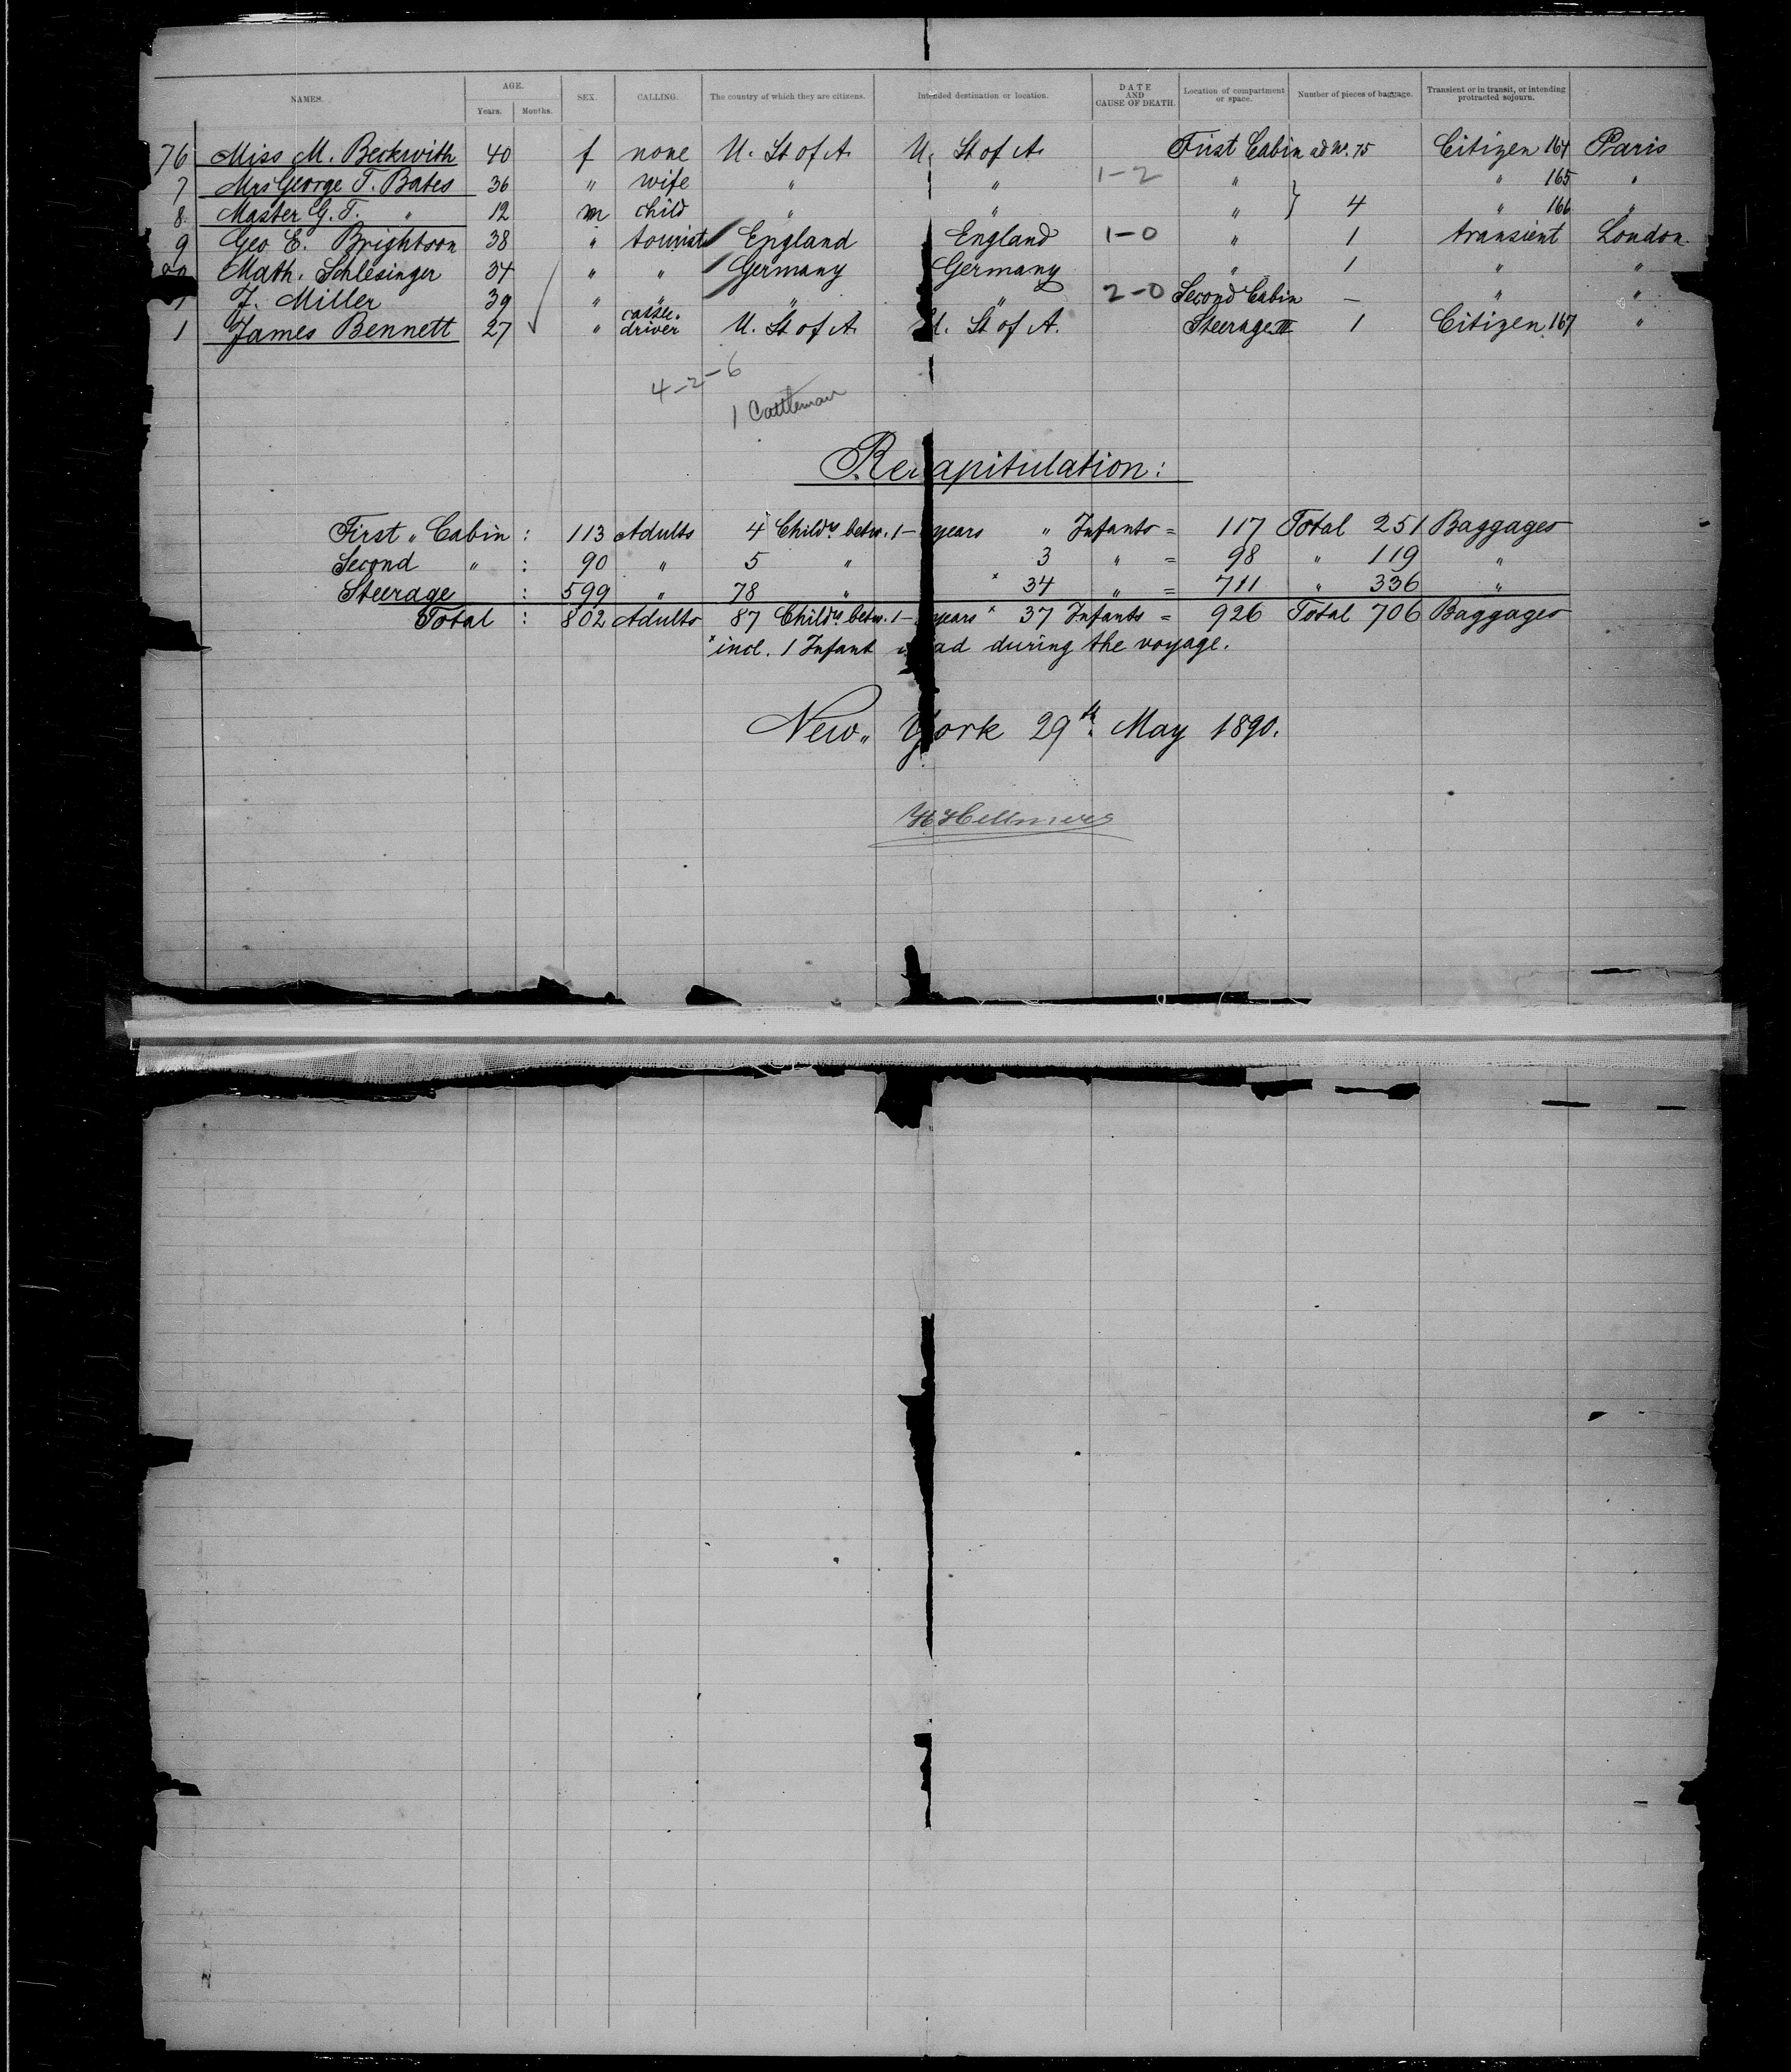 NAMES. AGE. SEX. CALLING. The country of which they are citizens. Intended destination or location. DATE AND CAUSE OF DEATH. Location of compartment or space. Number of pieces of baggage. Transient or in transit, or intending protracted sojourn.
Years. Months.
76 Miss M. Beckwith 40 f none U. St of A. U. St of A. First Cabin ad No. 75 Citizen 164 Paris
7 Mrs George T. Bates 36 " wife " " 1-2 " " 165 "
8 Master G. T. " 12 m child " " " } 4 " 166 "
9 Geo E. Brightson 38 " tourist England England 1-0 " 1 transient London
Math. Schlesinger 34 " " Germany Germany " 1 " "
J. Miller 39 " " " " 2-0 Second Cabin — " "
1 James Bennett 27 " cattle driver U. St of A. U. St of A. Steerage III 1 Citizen 167 "
4-2-6
1 Cattleman
Recapitulation:
First " Cabin : 113 Adults 4 Childr betw. 1- years " Infants = 117 Total 251 Baggages
Second " : 90 " 5 " 3 " = 98 " 119 "
Steerage : 599 " 78 " x 34 " = 711 " 336 "
Total : 802 Adults 87 Childr betw. 1- years x 37 Infants = 926 Total 706 Baggages
x incl. 1 Infant during the voyage.
New " York 29th May 1890.
H. Hellmers